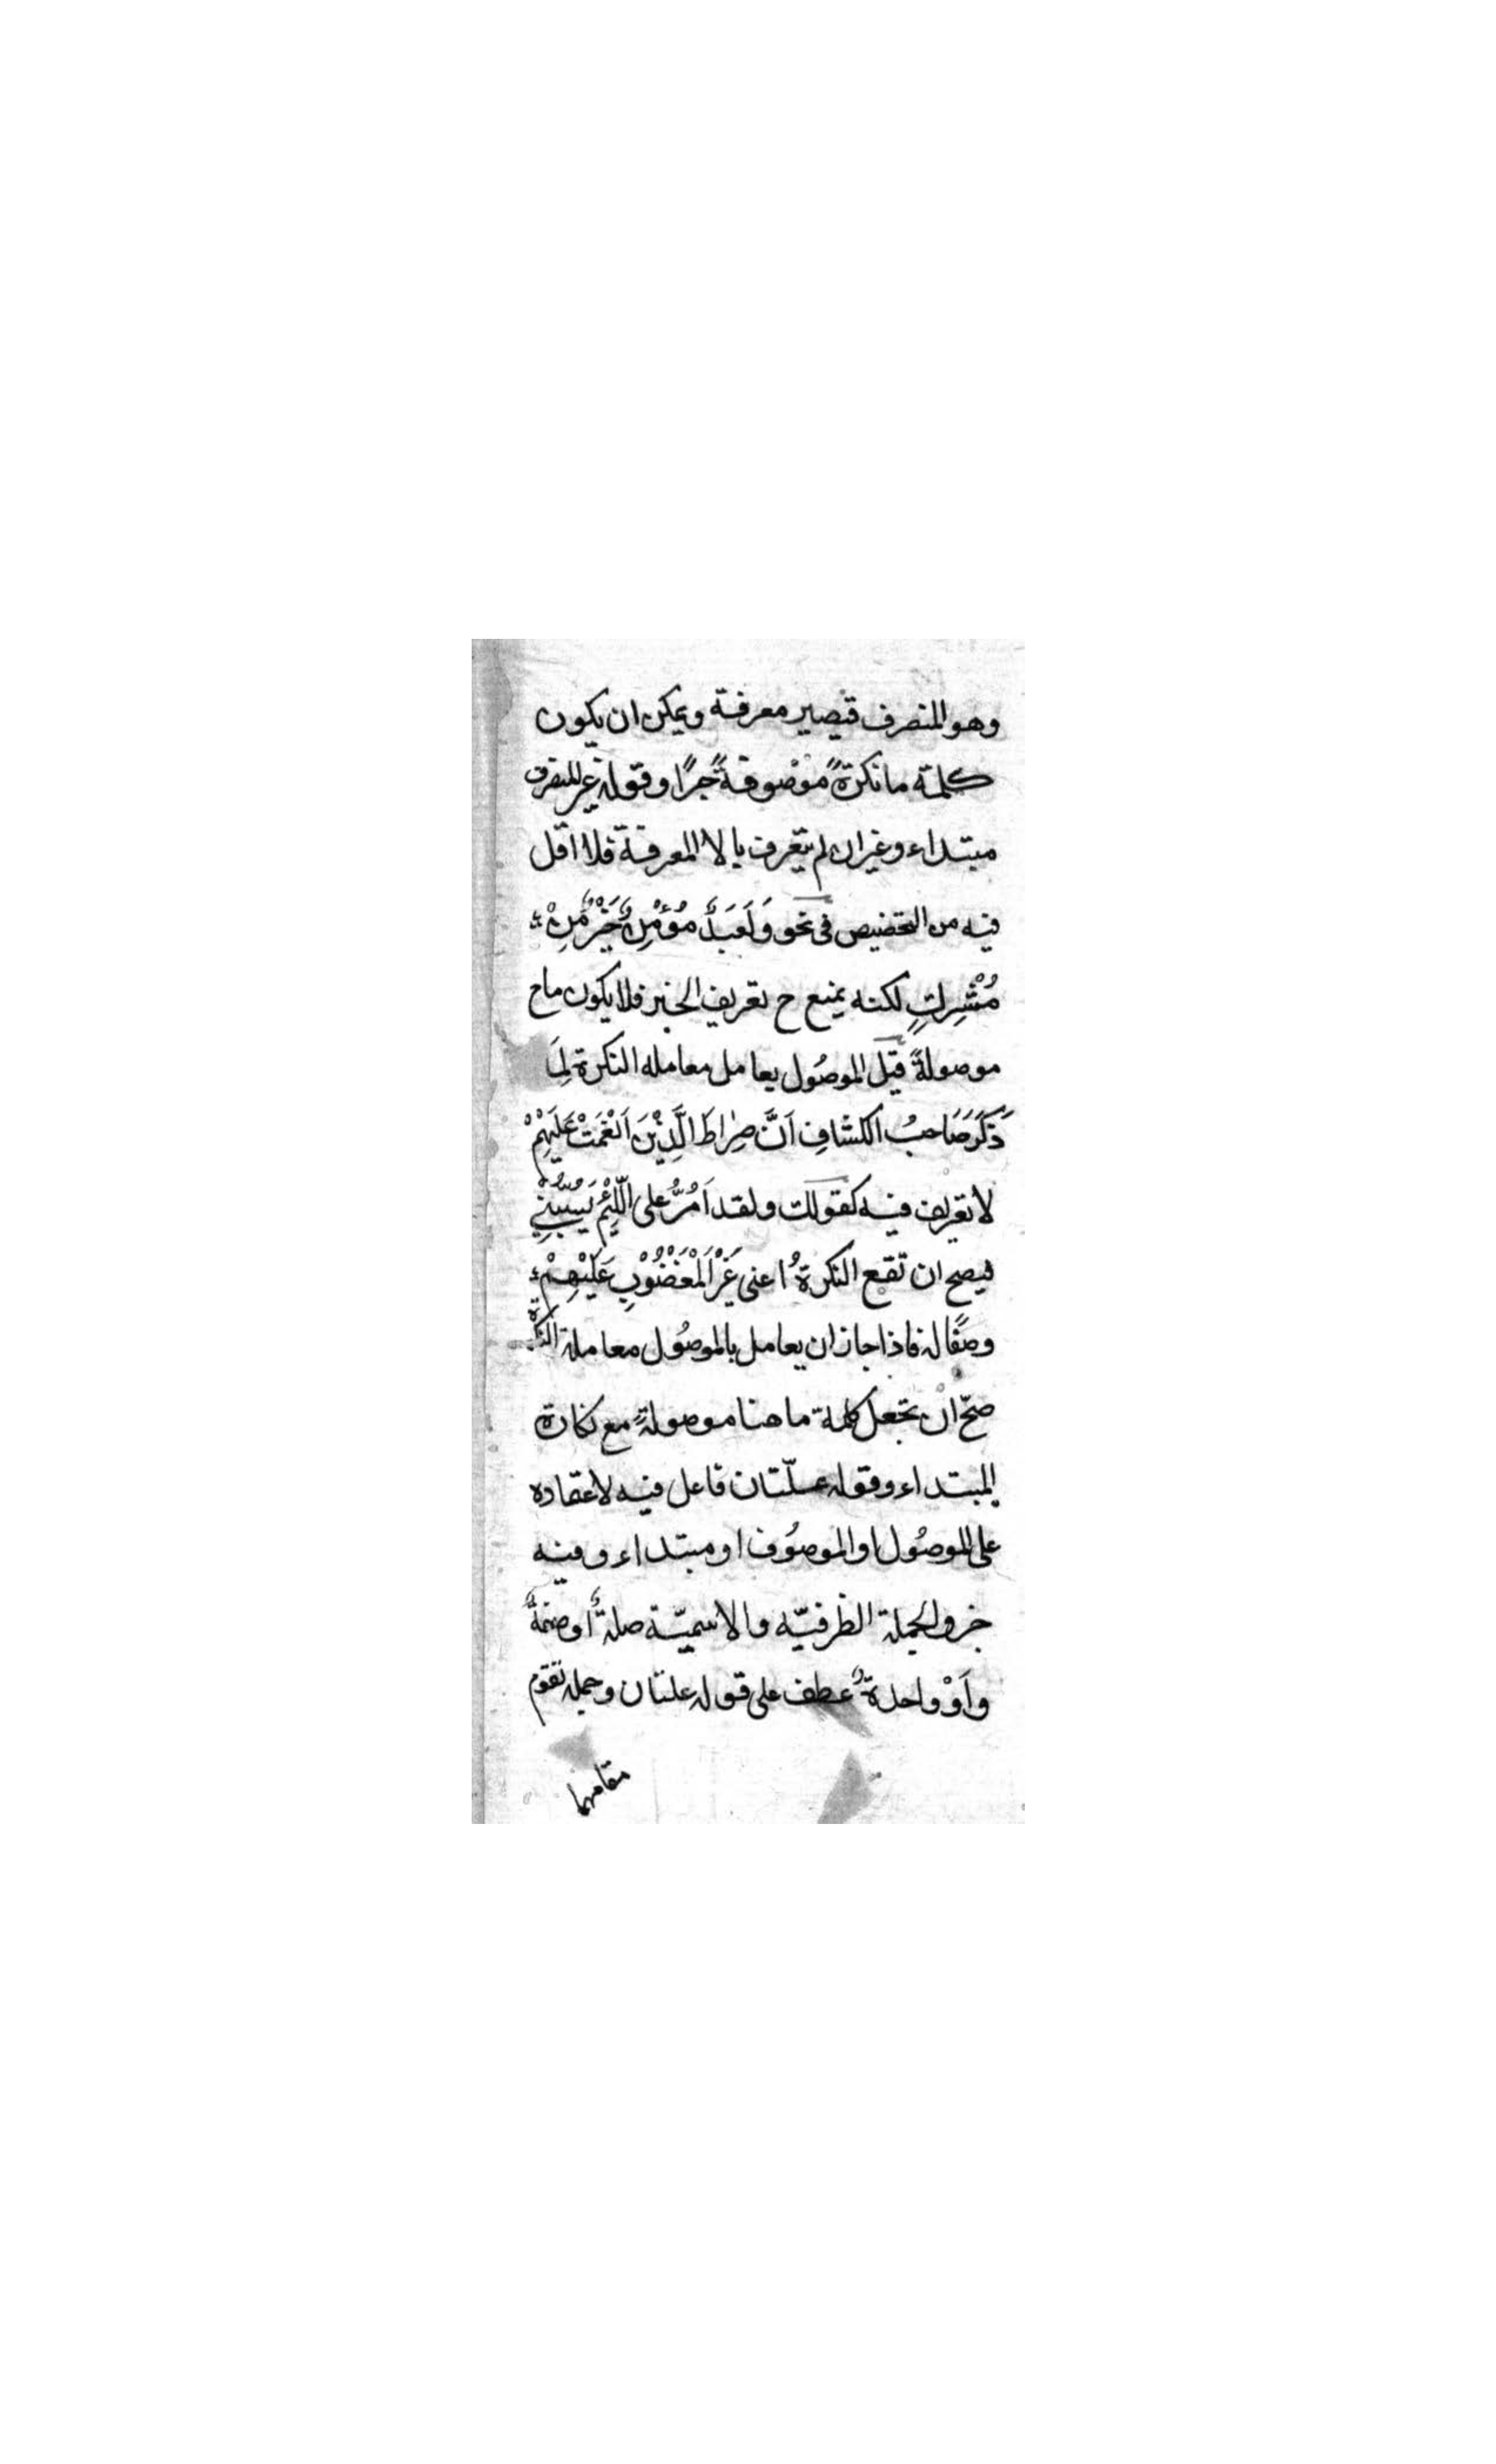 وهو المنصرف فيصير معرفة ويمكن ان يكون
كلمة ما نكرةً موصوفةً خبرًا وقوله غير المنصرف
مبتداء وغير ان لم يتعرف بالاالمعرفة فلا اقل
فيه من التخصيص فى نحو وَلَعَبْدٌ مُؤْمِنٌ خَيْرٌ مِّنْ
مُشْرِكٍ لكنه يمنع ح تعريف الخبر فلا يكون ما ح
موصولةً قيل الموصُول يعامل معامله النكرة لِمَا
ذَكَرَ صَاحبُ الكشافِ اَنَّ صِرَاطَ الَّذِيْنَ اَنْعَمْتَ عَلَيْهِمْ
لا تعريف فيه كقولك ولقد اَمُرُّ على اللَّئِيْمِ يَسُبُّنِيْ
فيصح ان تقع النكرةُ اعنى غَيْرَ الْمَغْضُوْبِ عَلَيْهِمْ
وصفًا له فاذا جاز ان يعامل بالموصُول معاملة النكرة
صحّ انْ تجعل كلمة ما هنا موصولةً مع نكارة
المبتداء وقوله علّتان فاعل فيه لاعتماده
على الموصُول او الموصُوف او مبتداء وفيه
خبر والجملة الظرفيّه والاسميّة صلةٌ او صفةٌ
واَوْ واحدةٌ عطف على قوله علتان وجمله تقوم
مقامهما